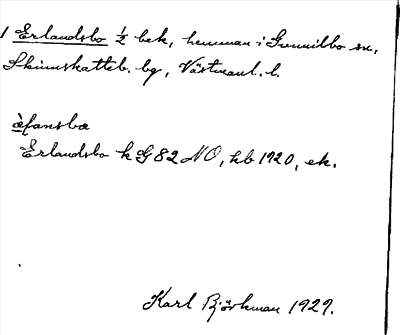 1 Erlandsbo ½ bek, hemman i Gunnilbo sn,
Skinnskatteb. bg, Västmanl. l.
àfansbα
Erlandsbo k G 82 NO, kb 1920, ek.
Karl Björkman 1929.